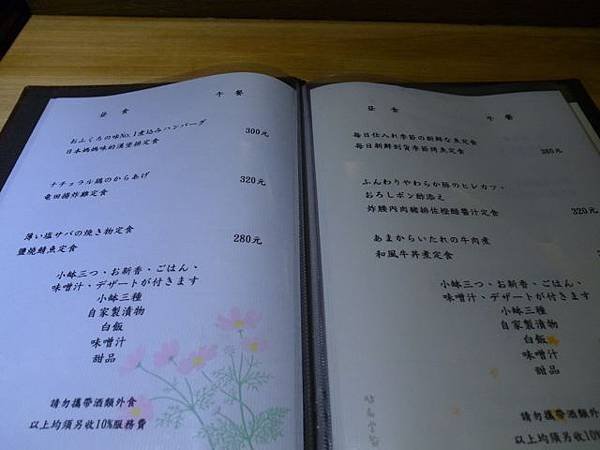 昼食 午餐
おふくろの味No.1煮込みハンバーグ
日本媽媽味的漢堡排定食 300元
ナチュラル鶏のからあげ
竜田揚炸雞定食 320元
薄い塩サバの焼き物定食
鹽燒鯖魚定食 280元
小鉢三つ・お新香・ごはん・
味噌汁・デザートが付きます
小鉢三種
自家製漬物
白飯
味噌汁
甜品
請勿攜帶酒類外食
以上均須另收10%服務費
昼食 午餐
毎日仕入れ季節の新鮮な魚定食
每日新鮮到貨季節烤魚定食 380元
ふんわりやわらか豚のヒレカツ・
おろしポン酢添え
炸腰內肉豬排佐橙醋醬汁定食 320元
あまからいたれの牛肉煮
和風牛丼煮定食
小鉢三つ・お新香・ごはん・
味噌汁・デザートが付きます
小鉢三種
自家製漬物
白飯
味噌汁
甜品
請勿攜帶酒類外食
以上均須另收10%服務